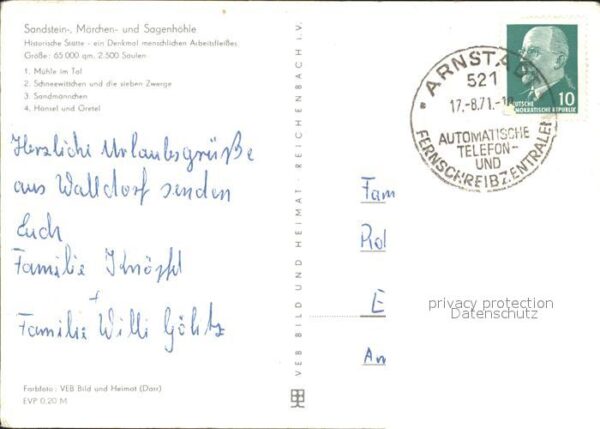 Sandstein-, Märchen- und Sagenhöhle
Historische Stätte - ein Denkmal menschlichen Arbeitsfleißes
Größe: 65 000 qm, 2 500 Säulen
1. Mühle im Tal
2. Schneewittchen und die sieben Zwerge
3. Sandmännchen
4. Hänsel und Gretel
Herzliche Urlaubsgrüße
aus Walldorf senden
Euch
Familie
+
Familie Willi
Farbfoto: VEB Bild und Heimat (Darr)
EVP 0,20 M
VEB BILD UND HEIMAT · REICHENBACH I. V.
ARNSTADT
521
17.-8.71.-
AUTOMATISCHE
TELEFON-
UND
FERNSCHREIBZENTRALEN
10
DEUTSCHE
DEMOKRATISCHE REPUBLIK
Fam
E
privacy protection
Datenschutz